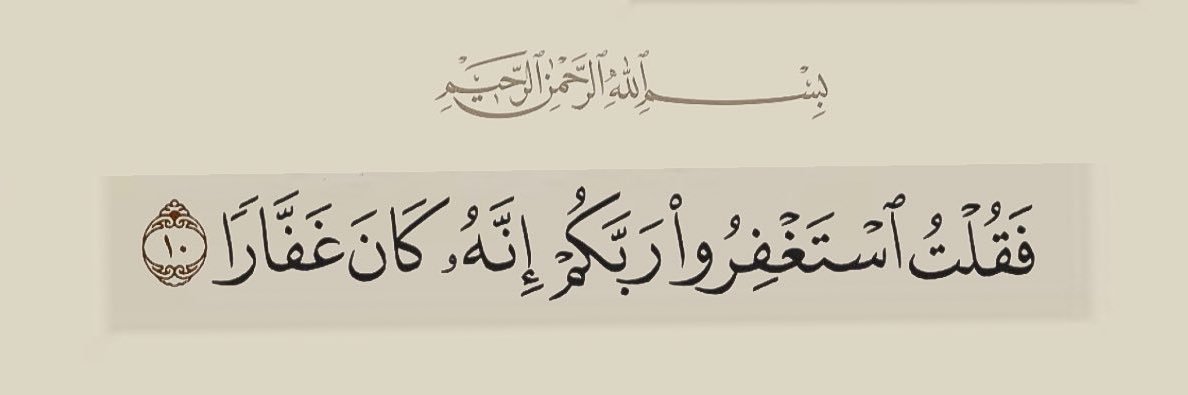 بِسْمِ ٱللَّهِ ٱلرَّحْمَٰنِ ٱلرَّحِيمِ
فَقُلْتُ ٱسْتَغْفِرُوا۟ رَبَّكُمْ إِنَّهُۥ كَانَ غَفَّارًا ١٠